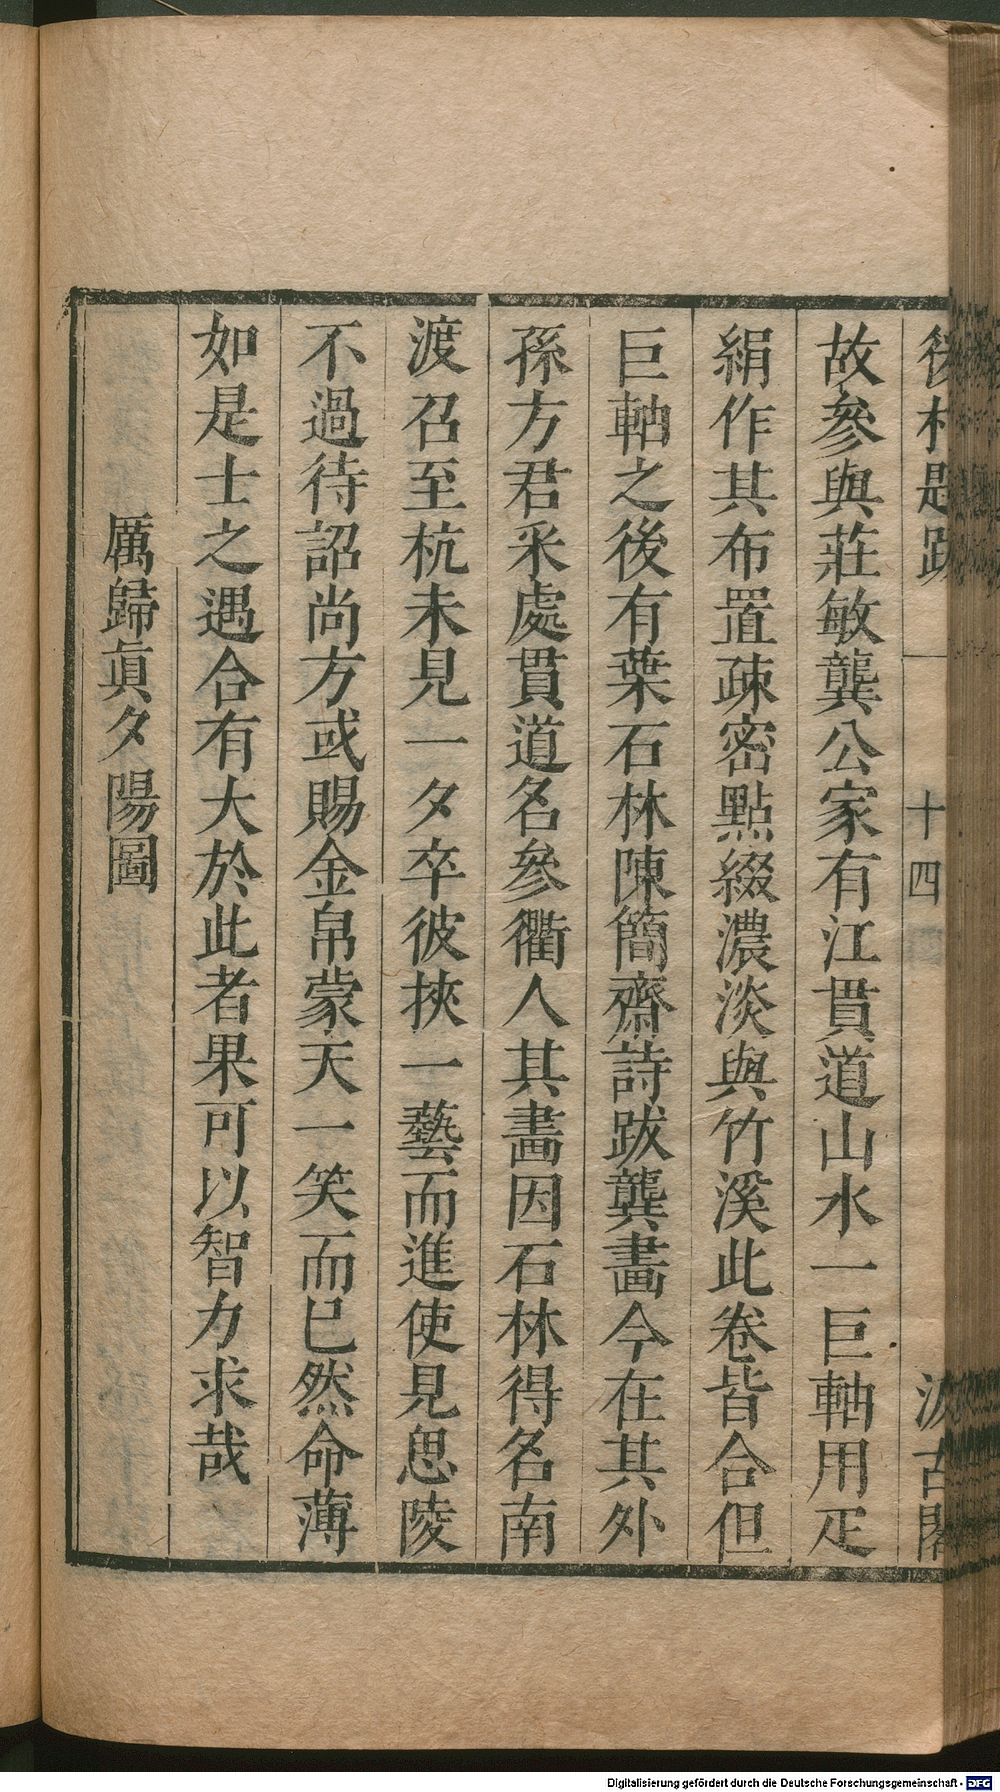 後村題跋 一 十四 汲古閣
故參與莊敏龔公家有江貫道山水一巨軸用疋
絹作其布置疎密點綴濃淡與竹溪此卷皆合但
巨軸之後有葉石林陳簡齋詩跋龔畫今在其外
孫方君采處貫道名參衢人其畫因石林得名南
渡召至杭未見一夕卒彼挾一藝而進使見思陵
不過待詔尚方或賜金帛蒙天一笑而已然命薄
如是士之遇合有大於此者果可以智力求哉
厲歸眞夕陽圖
Digitalisierung gefördert durch die Deutsche Forschungsgemeinschaft - DFG